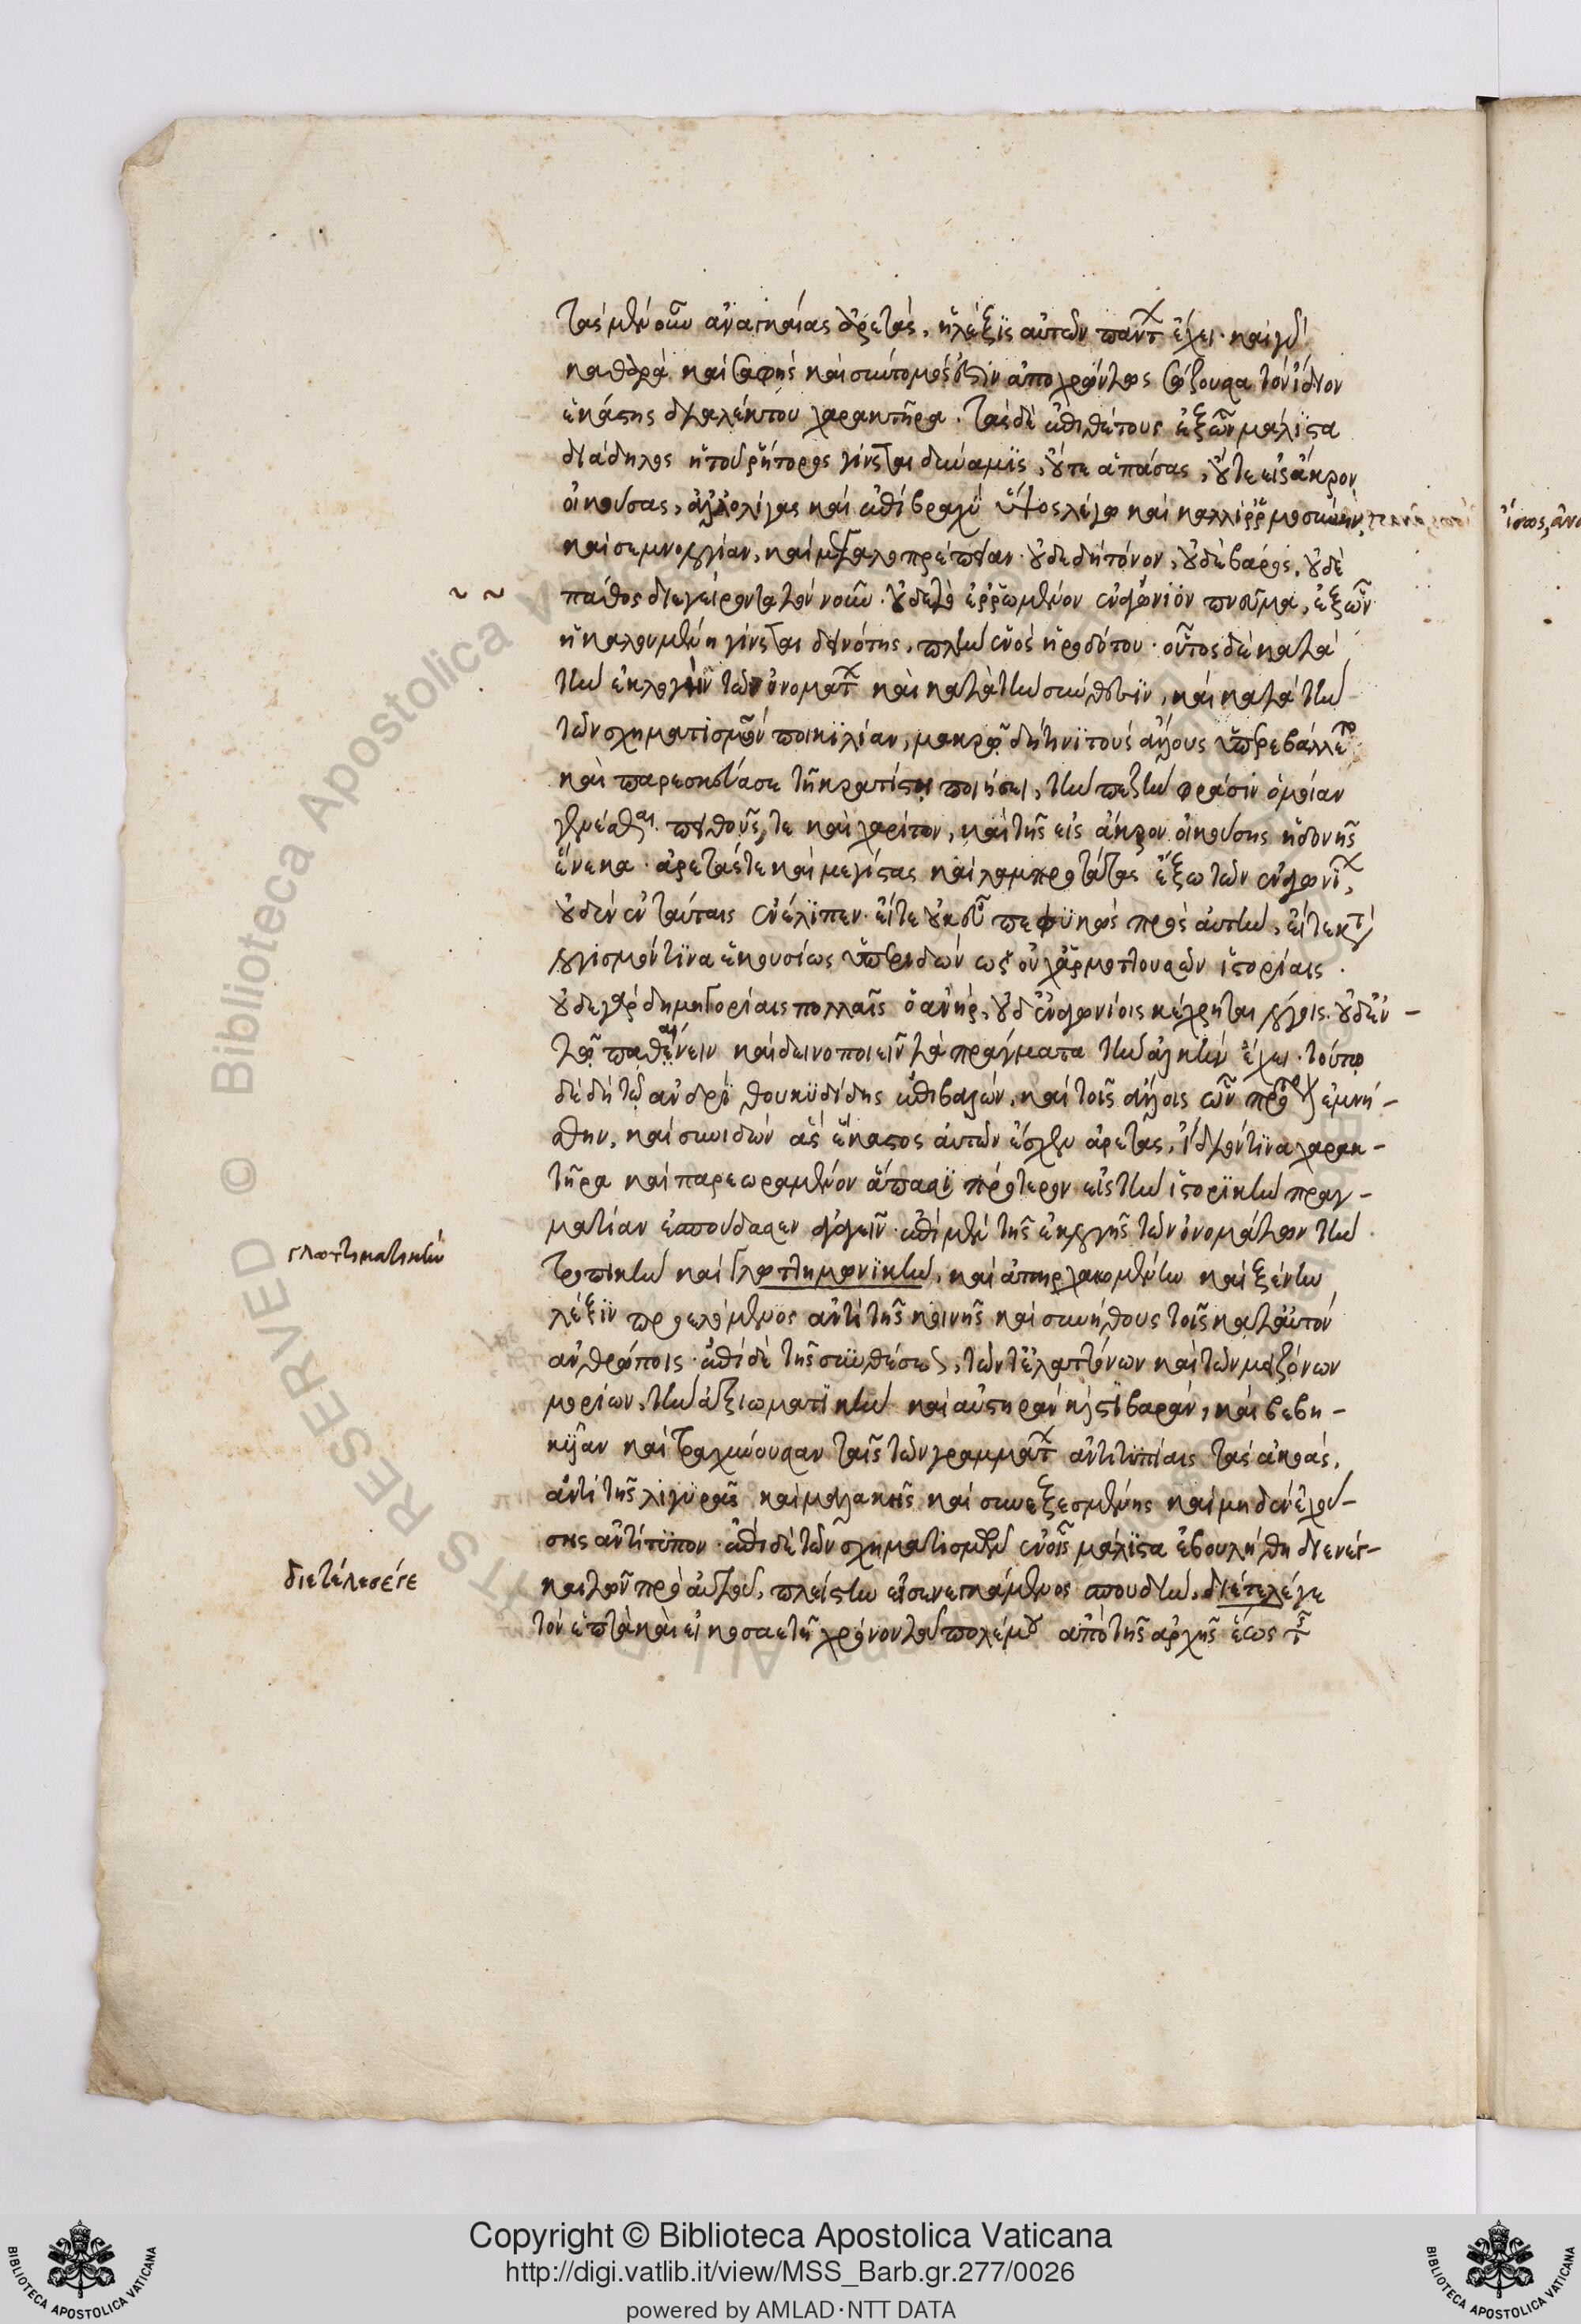 τὰς μὲν οὖν ἀναγκαίας ἀρετὰς, ἡ λέξις αὐτῶν πάντων ἔχει· καὶ γὰρ
καθαρὰ καὶ σαφὴς καὶ σύντομός ἐστιν ἀποχρώντως σώζουσα τὸν ἴδιον
ἑκάστης διαλέκτου χαρακτῆρα. τὰς δὲ ἐπιθέτους ἐξ ὧν μάλιστα
διάδηλος ἡ τοῦ ῥήτορος γίνεται δύναμις, οὔτε ἁπάσας, οὔτε εἰς ἄκρον
ἡκούσας, ἀλλ' ὀλίγας καὶ ἐπὶ βραχὺ ὕψος λέγω καὶ καλλιρρημοσύνην,
καὶ σεμνολογίαν, καὶ μεγαλοπρέπειαν· οὐδὲ δὴ τόνον, οὐδὲ βάρος, οὐδὲ
πάθος διεγείροντα τὸν νοῦν· οὐδὲ τὸ ἐρρωμένον ἐναγώνιον πνεῦμα, ἐξ ὧν
ἡ καλουμένη γίνεται δεινότης, πλὴν ἑνὸς ἡροδότου· οὗτος δὲ κατὰ
τὴν ἐκλογὴν τῶν ὀνομάτων καὶ κατὰ τὴν σύνθεσιν, καὶ κατὰ τὴν
τῶν σχηματισμῶν ποικιλίαν, μακρῷ δή τινι τοὺς ἄλλους ὑπερεβάλλετο
καὶ παρεσκεύασε τῇ κρατίστῃ ποιήσει, τὴν πεζὴν φράσιν ὁμοίαν
γενέσθαι πειθοῦς τε καὶ χαρίτων, καὶ τῆς εἰς ἄκρον ἡκούσης ἡδονῆς
ἕνεκα· ἀρετάς τε καὶ μεγίστας καὶ λαμπροτάτας ἔξω τῶν ἐναγωνίων,
οὐδὲν ἐν ταύταις ἐνέλιπεν· εἴτε οὐκ εὖ πεφυκὼς πρὸς αὐτὴν, εἴτε κατὰ
λογισμόν τινα ἑκουσίως ὑπεριδὼν ὡς οὐχ ἁρμοττουσῶν ἱστορίαις.
οὐδὲ γὰρ δημηγορίαις πολλαῖς ὁ ἀνὴρ, οὐδ' ἐναγωνίοις κέχρηται λόγοις. οὐδ' ἐν-
τῷ παθαίνειν καὶ δεινοποιεῖν τὰ πράγματα τὴν ἀλκὴν ἔχει· τούτῳ
δὲ δὴ τῷ ἀνδρὶ θουκυδίδης ἐπιβαλὼν, καὶ τοῖς ἄλλοις ὧν πρότερον ἐμνή-
σθην, καὶ συνιδὼν ἃς ἕκαστος αὐτῶν ἔσχεν ἀρετὰς, ἴδιόν τινα χαρακ-
τῆρα καὶ παρεωραμένον ἅπασι πρότερον εἰς τὴν ἱστορικὴν πραγ-
ματίαν ἐσπούδασεν ἀγαγεῖν· ἐπὶ μὲν τῆς ἐκλογῆς τῶν ὀνομάτων τὴν
γλωττηματικὴν
τροπικὴν καὶ γλωττημονικὴν, καὶ ἀπηρχαιομένην καὶ ξένην
λέξιν προελόμενος ἀντὶ τῆς κοινῆς καὶ συνήθους τοῖς κατ' αὐτὸν
ἀνθρώποις· ἐπὶ δὲ τῆς συνθέσεως, τῶν τ' ἐλαττόνων καὶ τῶν μειζόνων
μορίων, τὴν ἀξιωματικὴν καὶ αὐστηρὰν καὶ στιβαρὰν, καὶ βεβη-
κυῖαν καὶ τραχύνουσαν ταῖς τῶν γραμμάτων ἀντιτυπίαις τὰς ἀκοάς,
ἀντὶ τῆς λιγυρᾶς καὶ μαλακῆς καὶ συνεξεσμένης καὶ μηδὲν ἐχού-
σης ἀντίτυπον· ἐπὶ δὲ τῶν σχηματισμῶν ἐν οἷς μάλιστα ἐβουλήθη διενέγ-
διετέλεσέ γε
και τῶν πρὸ αὐτοῦ, πλείστην εἰσενεγκάμενος σπουδὴν, διετέλεγε
τὸν ἑπτὰ καὶ εἰκοσαετῆ χρόνον τοῦ πολέμου ἀπὸ τῆς ἀρχῆς ἕως τῆς
ἴσως, ἀνα
Copyright © Biblioteca Apostolica Vaticana
http://digi.vatlib.it/view/MSS_Barb.gr.277/0026
powered by AMLAD·NTT DATA
BIBLIOTECA APOSTOLICA VATICANA
BIBLIOTECA APOSTOLICA VATICANA